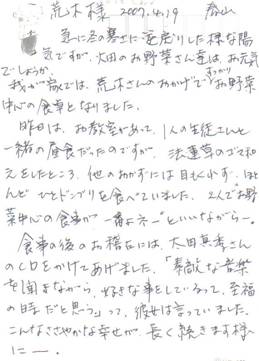 荒木様 2007.4.19 春山
急に冬の寒さに逆戻りした様な陽
気ですが、太田のお野菜さん達は、お元気
でしょうか。
我が家では、荒木さんのおかげですっかりお野菜
中心の食卓となりました。
昨日は、お教室があって、1人の生徒さんと
一緒の昼食だったのですが、法蓮草のゴマ和
えをしたところ、他のおかずには目もくれず、ほと
んどひとドンブリを食べていました。2人で"お野
菜中心の食事が一番よネー"といいながら―。
食事の後のお稽古には、太田真秀さん
のCDをかけてあげました。「素敵な音楽
を聞きながら、好きな事をしているって、至福
の時だと思う」って、彼女は言っていました。
こんなささやかな幸せが、長く続きます様
に―。